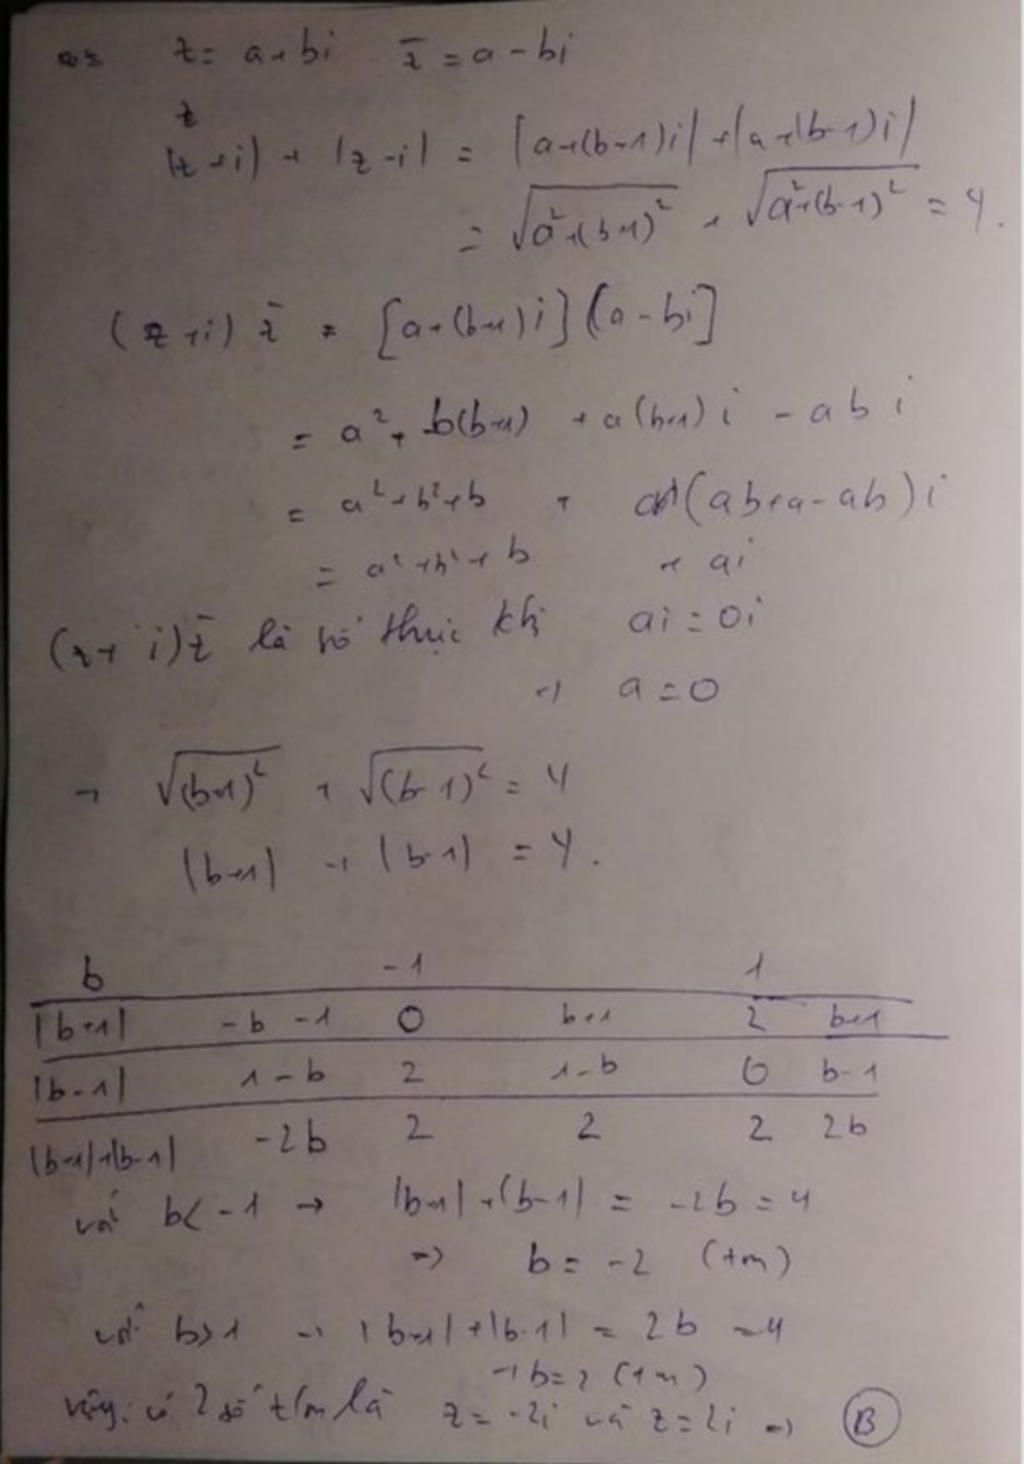 z = a + bi   z̄ = a - bi
z
|z + i| + |z - i| = |a + (b+1)i| + |a + (b-1)i|
= √(a² + (b+1)²) + √(a² + (b-1)²) = 4.
(z + i) z̄ = [a + (b+1)i] (a - bi]
= a² + b(b+1) + a(b+1)i - abi
= a² + b² + b + (ab + a - ab)i
= a² + b² + b + ai
(z + i)z̄ là số thực khi ai = 0i
→ a = 0
→ √(b+1)² + √(b-1)² = 4
|b+1| + |b-1| = 4.
b -1 1
|b+1| -b -1 0 b+1 2 b+1
|b-1| 1-b 2 1-b 0 b-1
|b+1|+|b-1| -2b 2 2 2 2b
với b < -1 → |b+1| + |b-1| = -2b = 4
=> b = -2 (tm)
với b > 1 → |b+1| + |b-1| = 2b = 4
→ b = 2 (tm)
vậy: có 2 số t/m là z = -2i và z = 2i => B